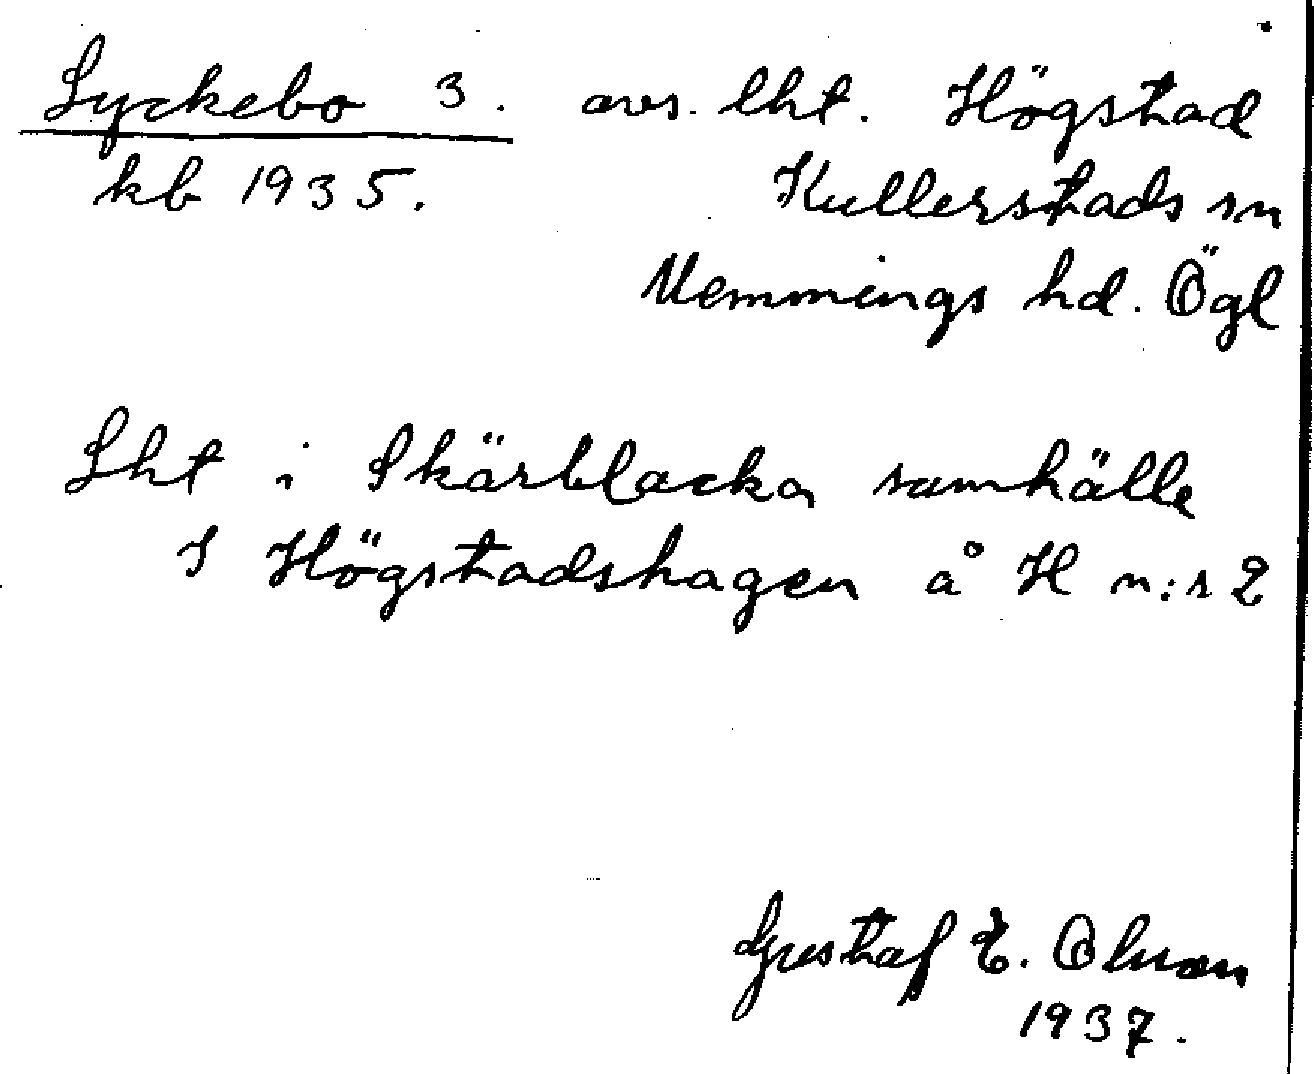 Lyckebo 3. avs. lht. Högstad
kb 1935. Kullerstads sn
Memmings hd. Ögl
Lht i Skärblacka samhälle
I Högstadshagen å H n:r 2
Gustaf E. Olsson
1937.